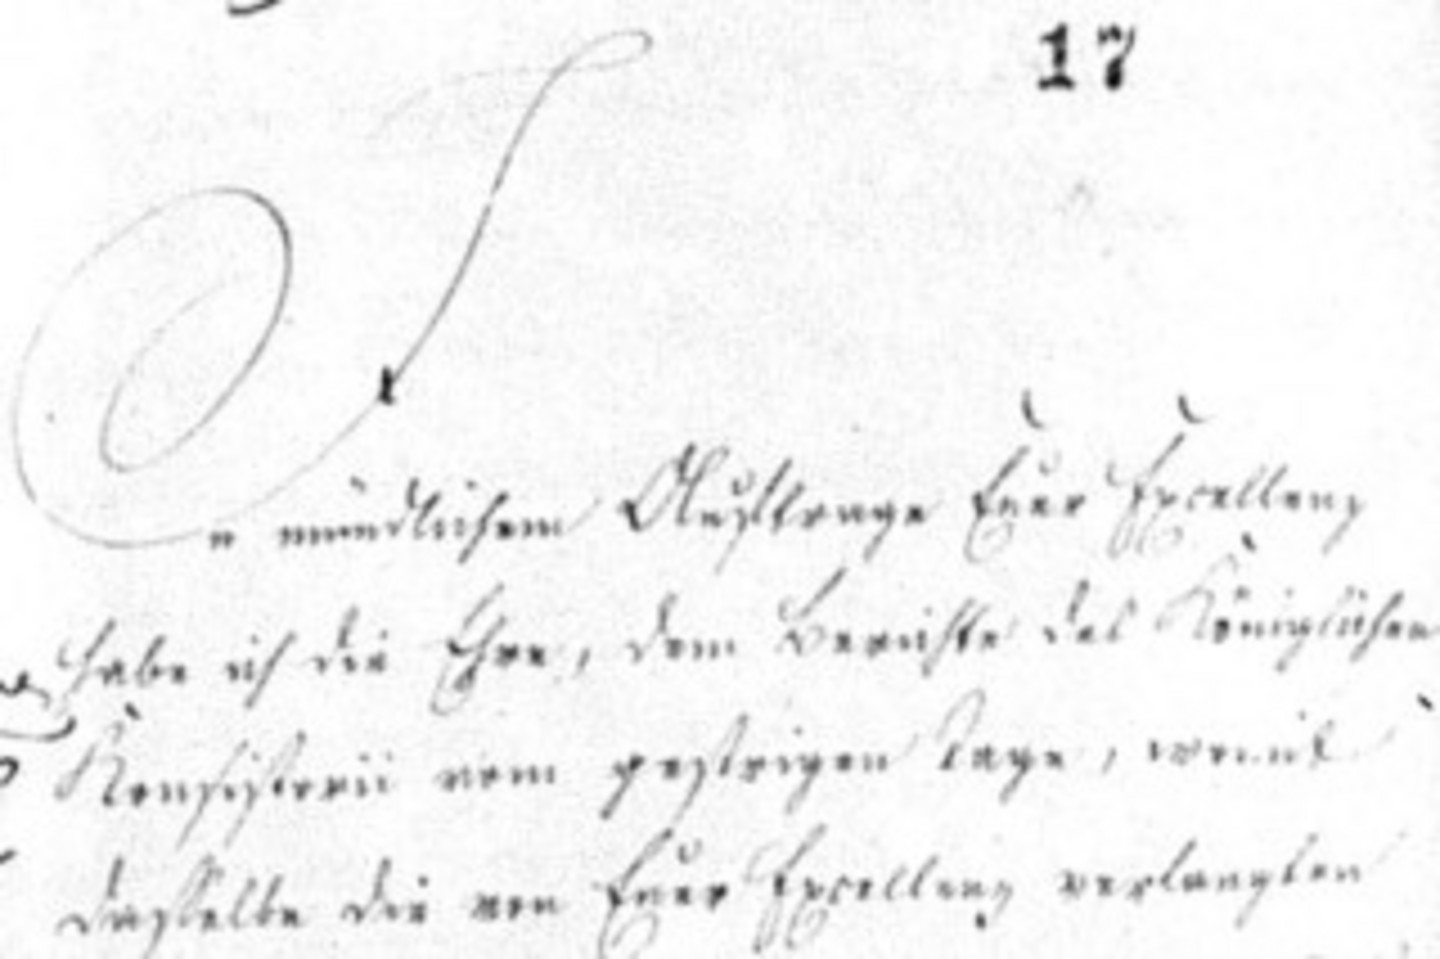 17
In mündlichem Auftrage Euer Excellenz
habe ich die Ehre, dem Berichte des Königlichen
Konsistorii vom gestrigen Tage, womit
dasselbe die von Euer Excellenz verlangten